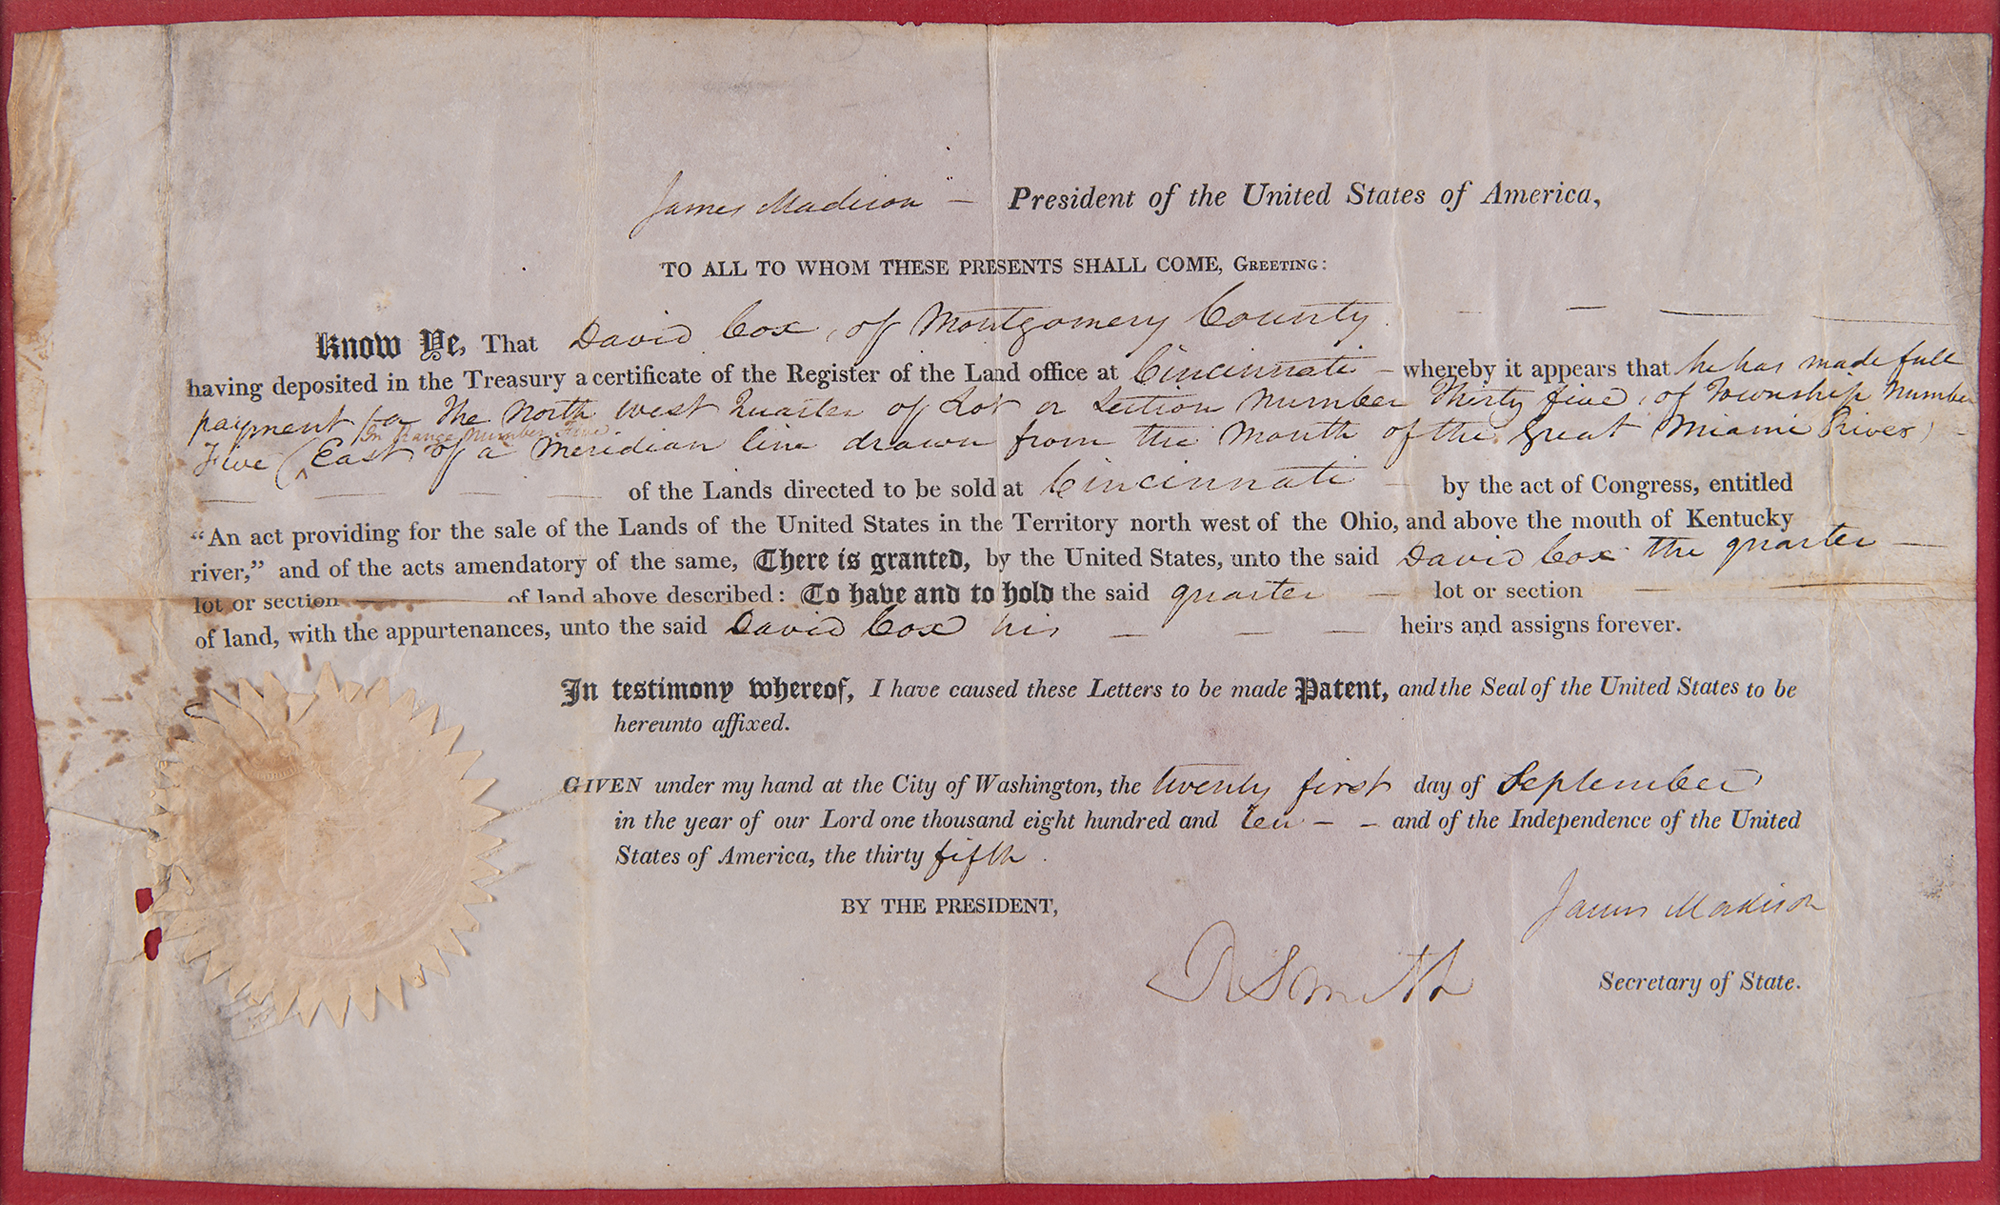 James Madison — President of the United States of America,
TO ALL TO WHOM THESE PRESENTS SHALL COME, GREETING:
Know Ye, That David Cox, of Montgomery County.
having deposited in the Treasury a certificate of the Register of the Land office at Cincinnati — whereby it appears that he has made full
payment for the North West Quarter of Lot or Section Number Thirty five, of Township Number
In Range Number Five
Five (^ East of a Meridian line drawn from the Mouth of the Great Miami River)
of the Lands directed to be sold at Cincinnati — by the act of Congress, entitled
“An act providing for the sale of the Lands of the United States in the Territory north west of the Ohio, and above the mouth of Kentucky
river,” and of the acts amendatory of the same, There is granted, by the United States, unto the said David Cox the quarter —
lot or section — of land above described: To have and to hold the said quarter — lot or section —
of land, with the appurtenances, unto the said David Cox his — — — heirs and assigns forever.
In testimony whereof, I have caused these Letters to be made Patent, and the Seal of the United States to be
hereunto affixed.
GIVEN under my hand at the City of Washington, the twenty first day of September
in the year of our Lord one thousand eight hundred and ten — — and of the Independence of the United
States of America, the thirty fifth.
BY THE PRESIDENT,
James Madison
R Smith
Secretary of State.